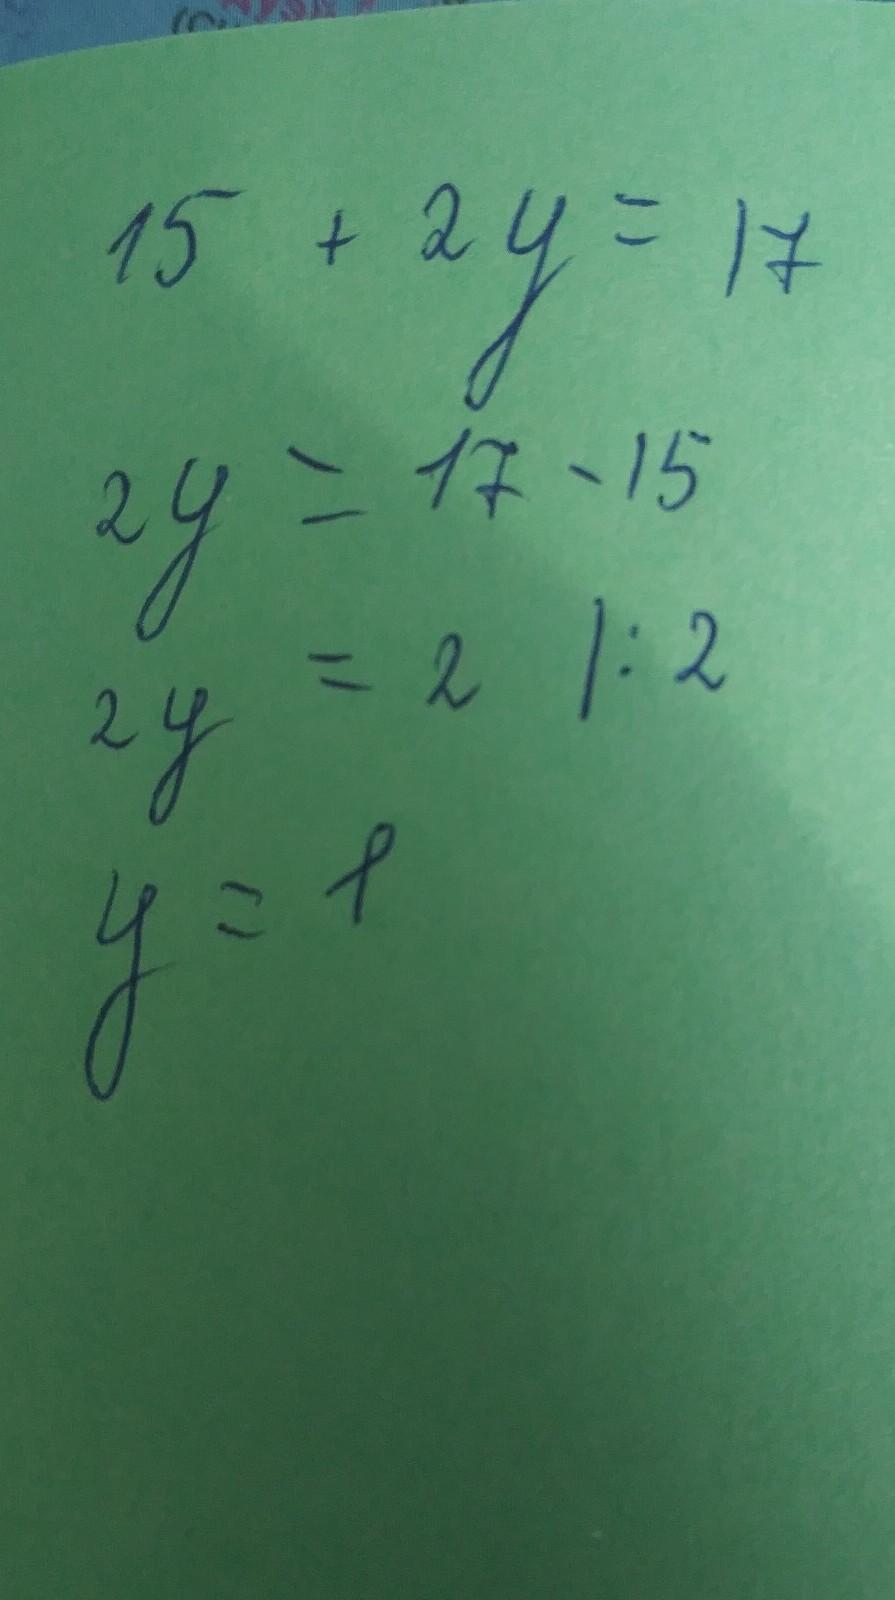 15 + 2y = 17
2y = 17 - 15
2y = 2 |: 2
y = 1